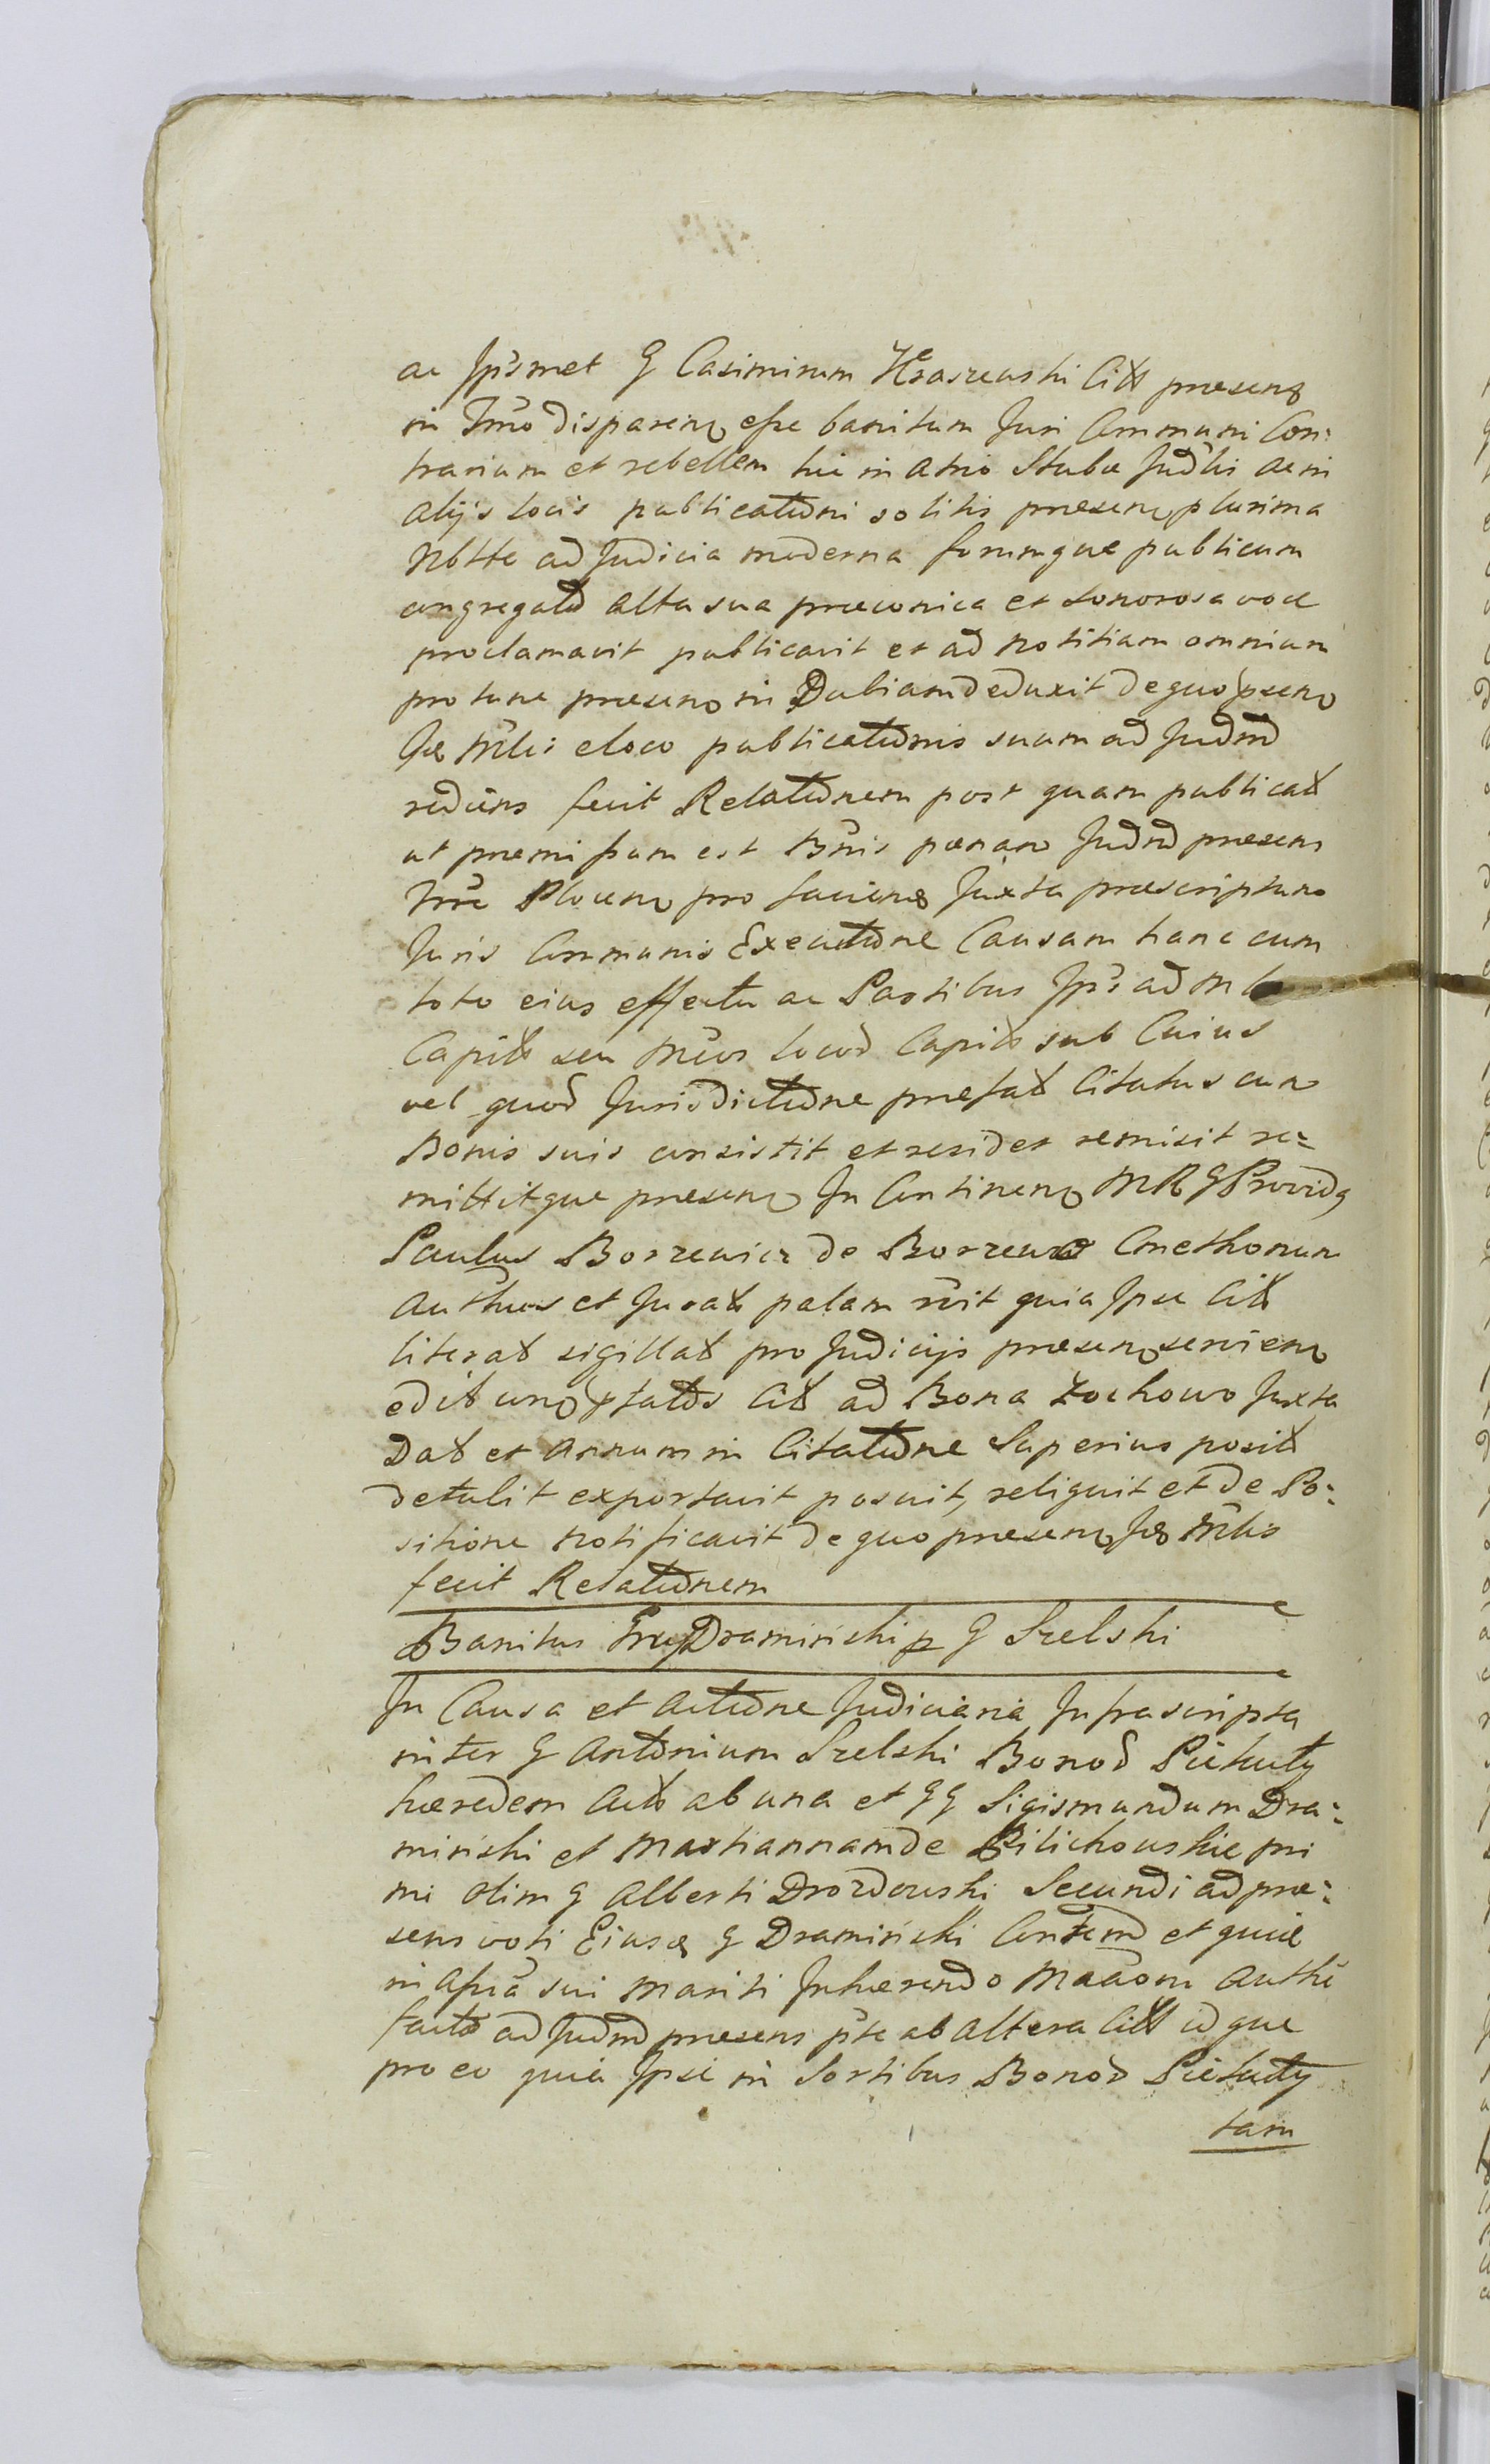 ac Ipsmet G Casimirum Kraszewski Citt praesen
in Trno disparen esse banitum Juri Communi Con:
trarium et rebellem hic in atrio Stubae Judlis ac in
alijs locis publicationi solitis praesen plurima
Nbtte ad Judicia moderna forumque publicum
congregatd alta sua praeconica et sonorosa voce
proclamavit publicavit et ad notitiam omnium
pro tunc praesen in Dubiam deduxit de quo praesen
Idē Mlis e loco publicationis suum ad Judnd
rediens fecit Relationem post quam publicat
ut premissum est Bnis poenam Judnd praesens
Trre Plocen pro facien Juxta praescriptum
Juris Communis Executione Causam hanc cum
toto eius effectu ac Partibus Ips ad M
Capit seu Mcor locod Capit sub Cuius
vel quod Jurisdictione praefat Citatus cum
Bonis suis consistit et residet remisit re:
mittitque praesen In Continen MR G Provid
Paulus Borzewicz de Borzewo Cmethonum
Authus et Jurat palam rcit quia Ipse Cit
literat sigillat pro Judicijs praesen servien
edit unq ptatos Cit ad Bona Zochowo Juxta
Dat et Annum in Citatione Superius posit
detulit exportavit posuit, reliquit et de Po:
sitione notificavit de quo praesen Id Mlis
fecit Relationem
Banitus Grus Dramiński p G Szelski
In Causa et actione Judiciaria Infrascripta
inter G Antonium Szelski Bonod Piętuty
haeredem Act ab una et GG Sigismundum Dra:
miński et Mariannam de Bilichowskie pri
mi olim G Alberti Drozdowski Secundi ad prae:
sens voti Eiusd G Dramiński Contem et quae
in assia sui mariti Inhaerendo Maaom Authe
facto ad Judnd praesens pte ab altera Citt idque
pro eo quia Ipsi in Sortibus Bonod Piętuty
tam